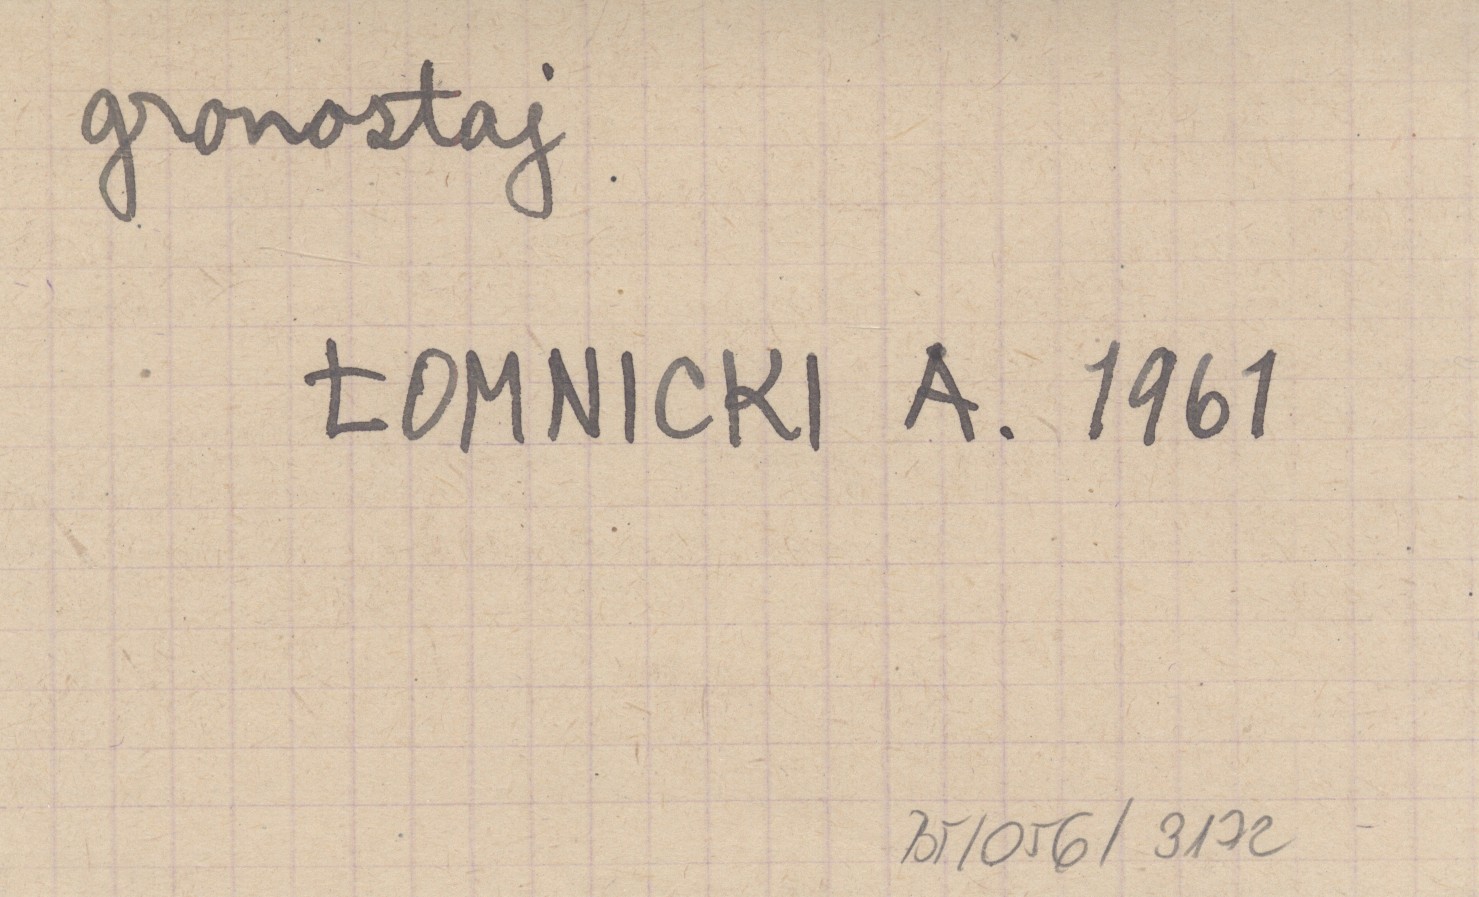 gronostaj
ŁOMNICKI A. 1961
75/056/3172